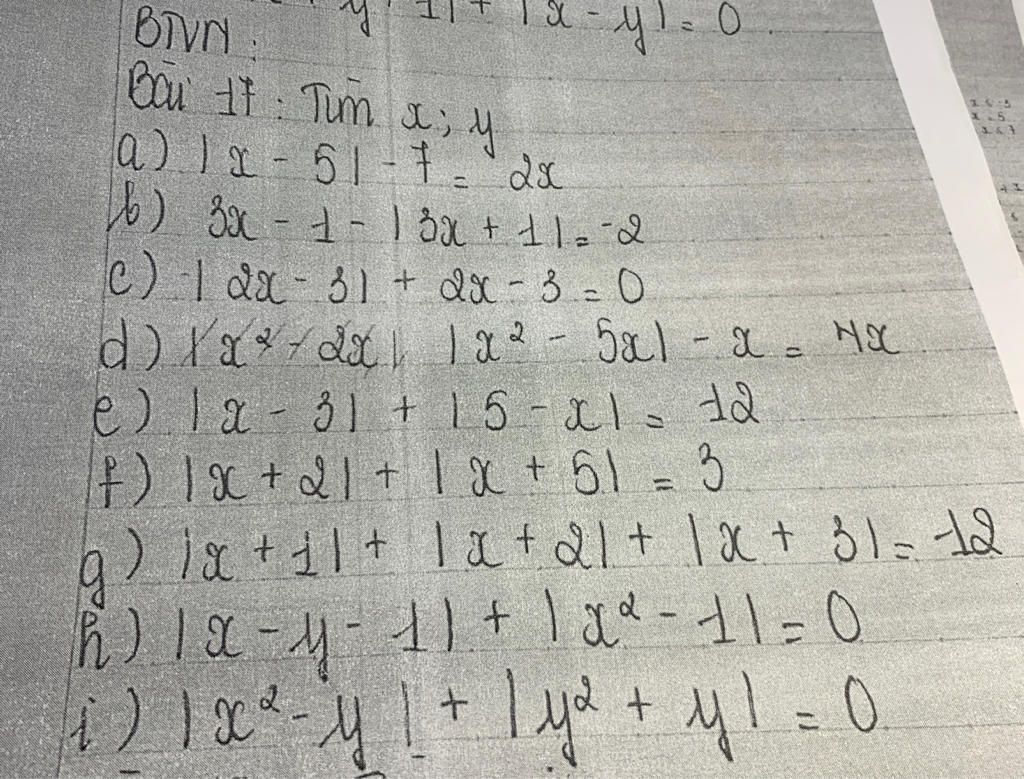 y 1| + |x - y| = 0
BTVN :
Bài 17 : Tìm x ; y
a) |x - 5| - 7 = 2x
b) 3x - 1 - |3x + 1| = -2
c) |2x - 3| + 2x - 3 = 0
d) |x² - 5x| - x = 4x
e) |x - 3| + |5 - x| = 12
f) |x + 2| + |x + 5| = 3
g) |x + 1| + |x + 2| + |x + 3| = 12
h) |x - y - 1| + |x² - 1| = 0
i) |x² - y| + |y² + y| = 0